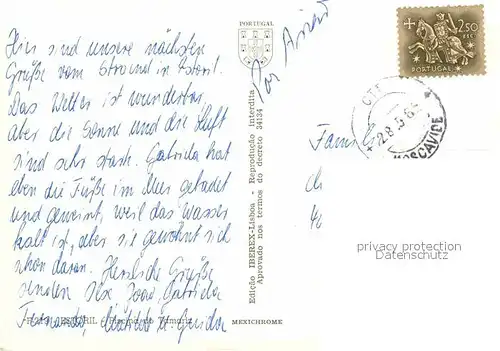 Hier sind unsere nächsten
Grüße vom Strand in Estoril.
Das Wetter ist wunderbar,
aber die Sonne und die Luft
sind sehr stark. Gabriela hat
eben die Füße im Meer gebadet
und geweint, weil das Wasser
kalt ist, aber sie gewöhnt sich
schon daran. Herzliche Grüße
senden Ilse, Joao, Gabriela
Fernando, Mathilde u. Guida
ESTORIL
Tamariz
MEXICHROME
PORTUGAL
Edição IBEREX-Lisboa - Reprodução interdita
Aprovado nos termos do decreto 34134
Por Avião
2$50
ESC.
PORTUGAL
CTT
MOSCAVIDE
Fam.
privacy protection
Datenschutz